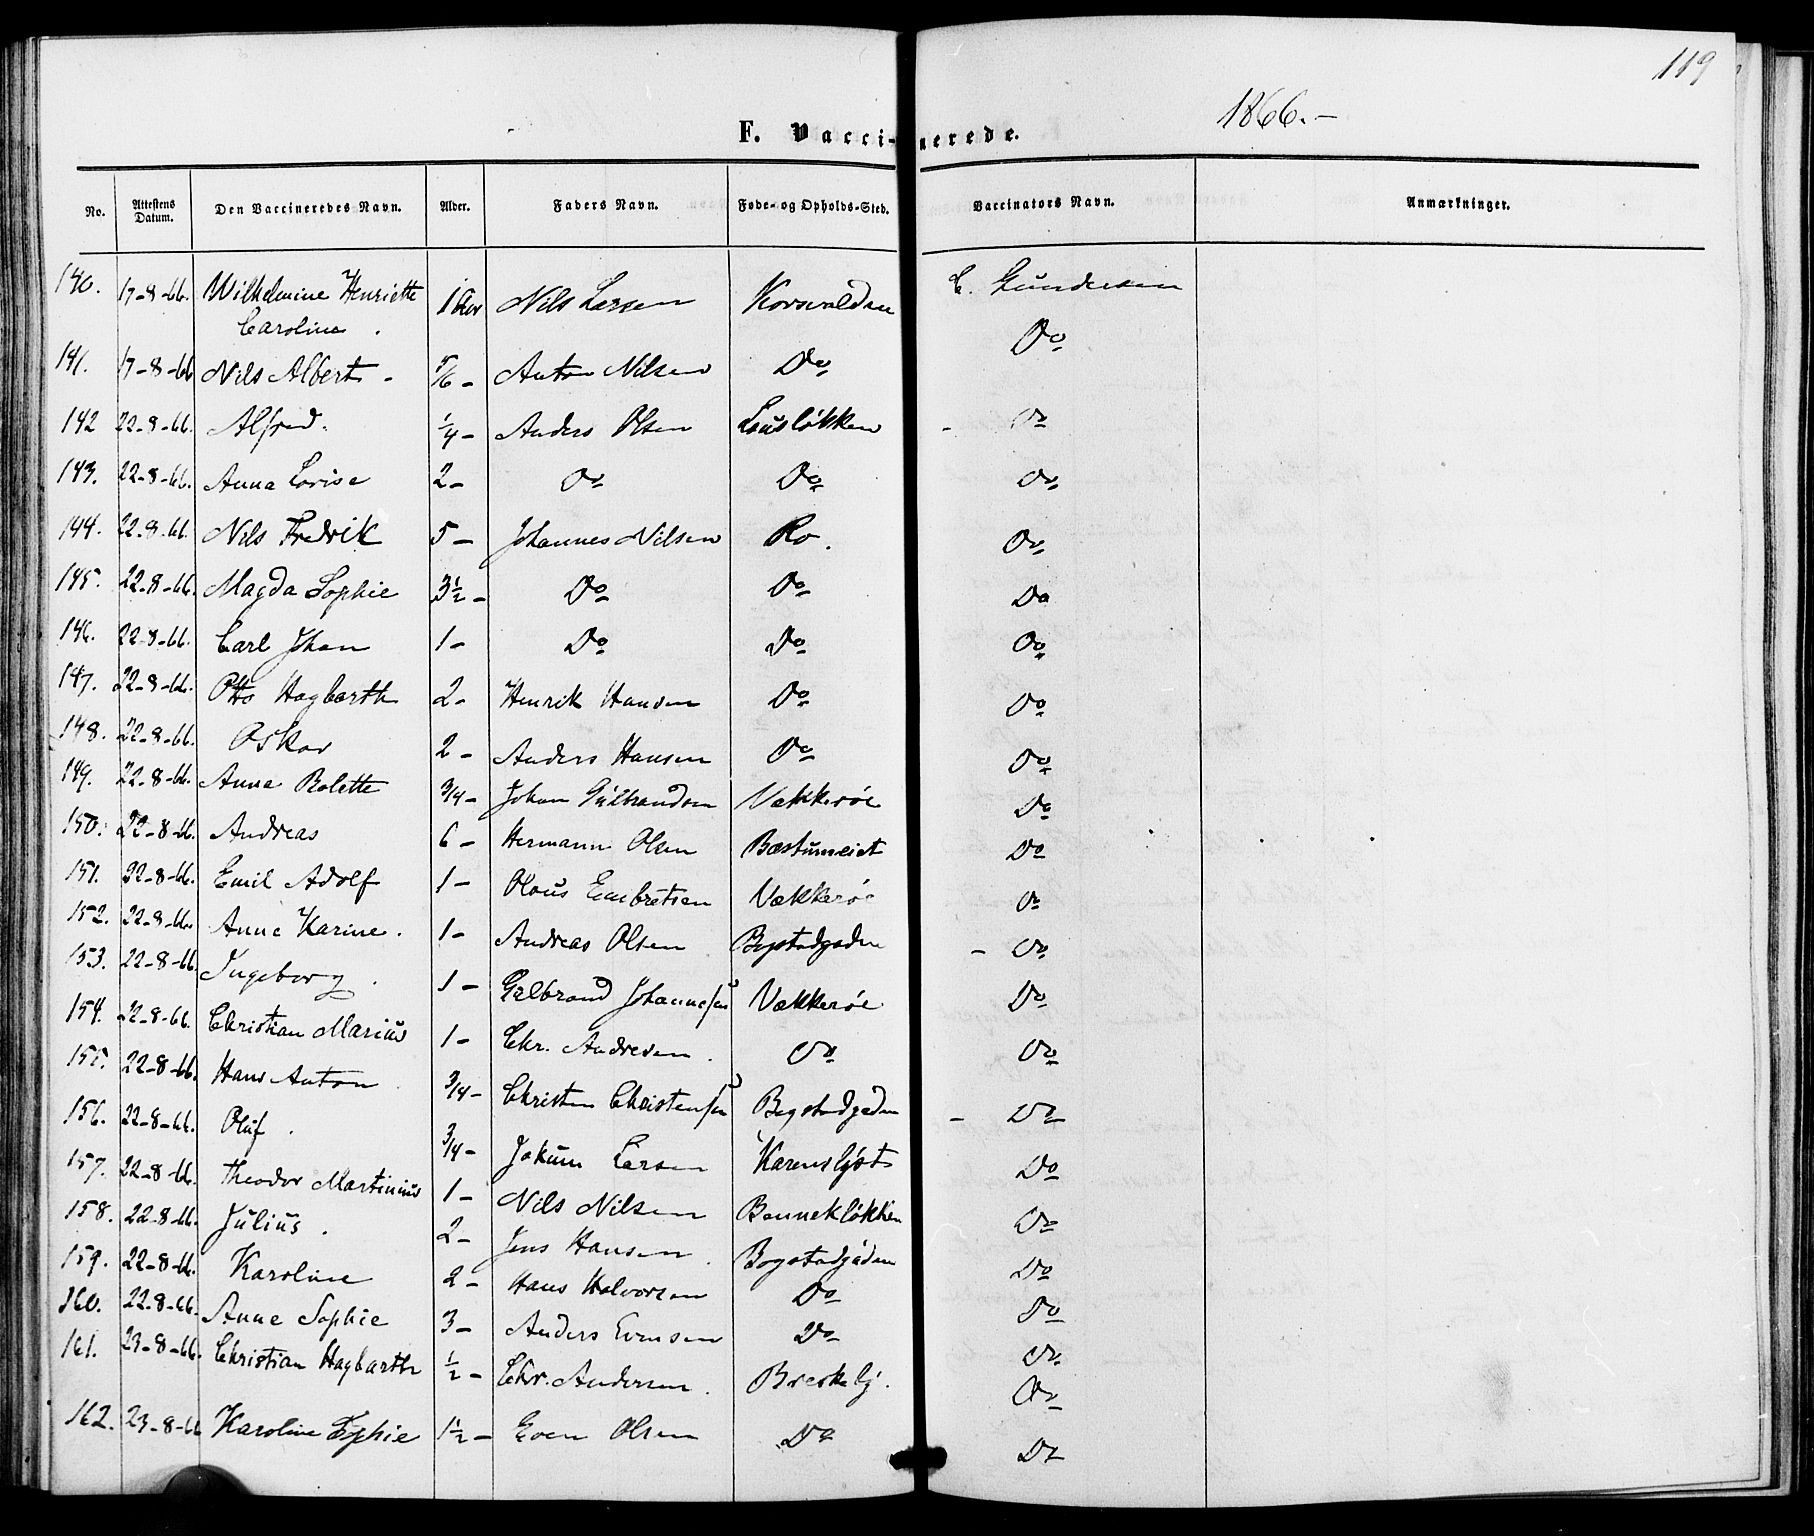 119
1866.-
F. Vaccinerede.
No. Attestens Datum. Den Vaccineredes Navn. Alder. Faders Navn. Føde- og Opholds-Sted. Vaccinators Navn. Anmærkninger.
140. 17-8-66. Wilhelmine Henriette Caroline. 1 Aar Nils Larsen Korsvoldsen C. Gundersen
Do
141. 17-8-66 Nils Albert - 5/6 - Anton Nilsen Do
142 22-8-66. Alfred. 1/4 - Anders Olsen Lousløkken - Do
143. 22-8-66. Anna Lovise 2- Do Do Do
144. 22-8-66. Nils Fredrik 5- Johannes Nilsen Ro. Do
145. 22-8-66. Magda Sophie 3 1/2 - Do Do Do
146. 22-8-66. Carl Johan 1- Do Do Do
147. 22-8-66. Otto Hagbarth 2- Henrik Hansen Do Do
148. 22-8-66. Oskar 2- Anders Hansen Do Do
149. 22-8-66. Anne Bolette 3/4 - Johan Gulbrandsen Vækkerøe Do
150. 22-8-66. Andreas 6- Hermann Olsen Bæstumeiet Do
151. 22-8-66. Emil Adolf 1- Olaus Embretsen Vækkerøe Do
152. 22-8-66. Anne Karine. 1- Andreas Olsen Bogstadgaden - Do
153. 22-8-66. Ingeborg. 1- Gulbrand Johannesen Vækkerøe Do
154. 22-8-66. Christian Marius 1- Chr. Andresen. Do Do
155. 22-8-66. Hans Anton 3/4 - Christen Christensen Bogstadgaden - Do
156. 22-8-66. Oluf. 3/4 - Jokum Larsen Karenslyst Do
157. 22-8-66. Theodor Martinius 1- Nils Nilsen Benneksløkken Do
158. 22-8-66. Julius. 2- Jens Hansen. Bogstadgaden Do
159. 22-8-66. Karoline 2- Hans Halvorsen Do Do
160. 22-8-66. Anne Sophie 3- Anders Evensen Do Do
161. 23-8-66. Christian Hagbarth 1/2 - Chr. Andersen. Breskelj. Do
162. 23-8-66 Karoline Sophie 1 1/2 - Even Olsen Do Do